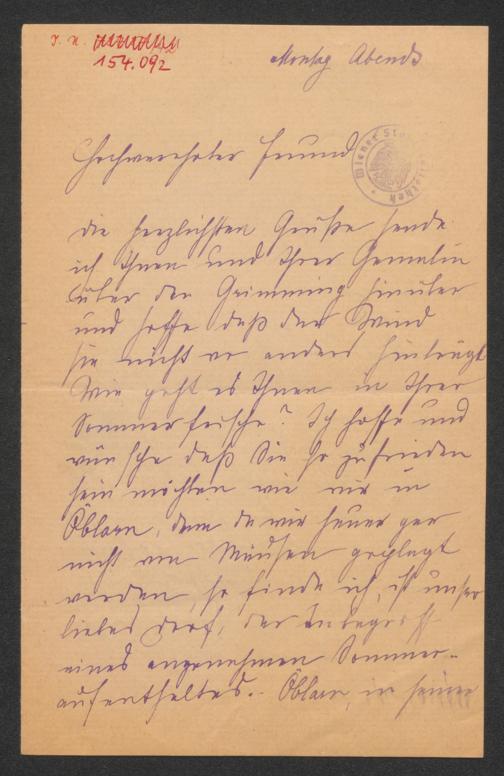 J. N.
154.092
Montag Abends
Hochverehrter Freund
Wiener Sta bibliothek
die herzlichsten Grüße sende
ich Ihnen und Ihrer Gemalin
über den Grimming hinüber
und hoffe daß der Wind
sie nicht wo anders hinträgt
Wie geht es Ihnen in Ihrer
Sommerfrische? Ich hoffe und
wünsche daß Sie so zufrieden
sein möchten wie wir in
Öblarn, denn da wir heuer gar
nicht von Mäusen geplagt
werden, so finde ich, ist unser
liebes Dorf, der Inbegriff
eines angenehmen Sommer-
aufenthaltes. Öblarn, in seiner